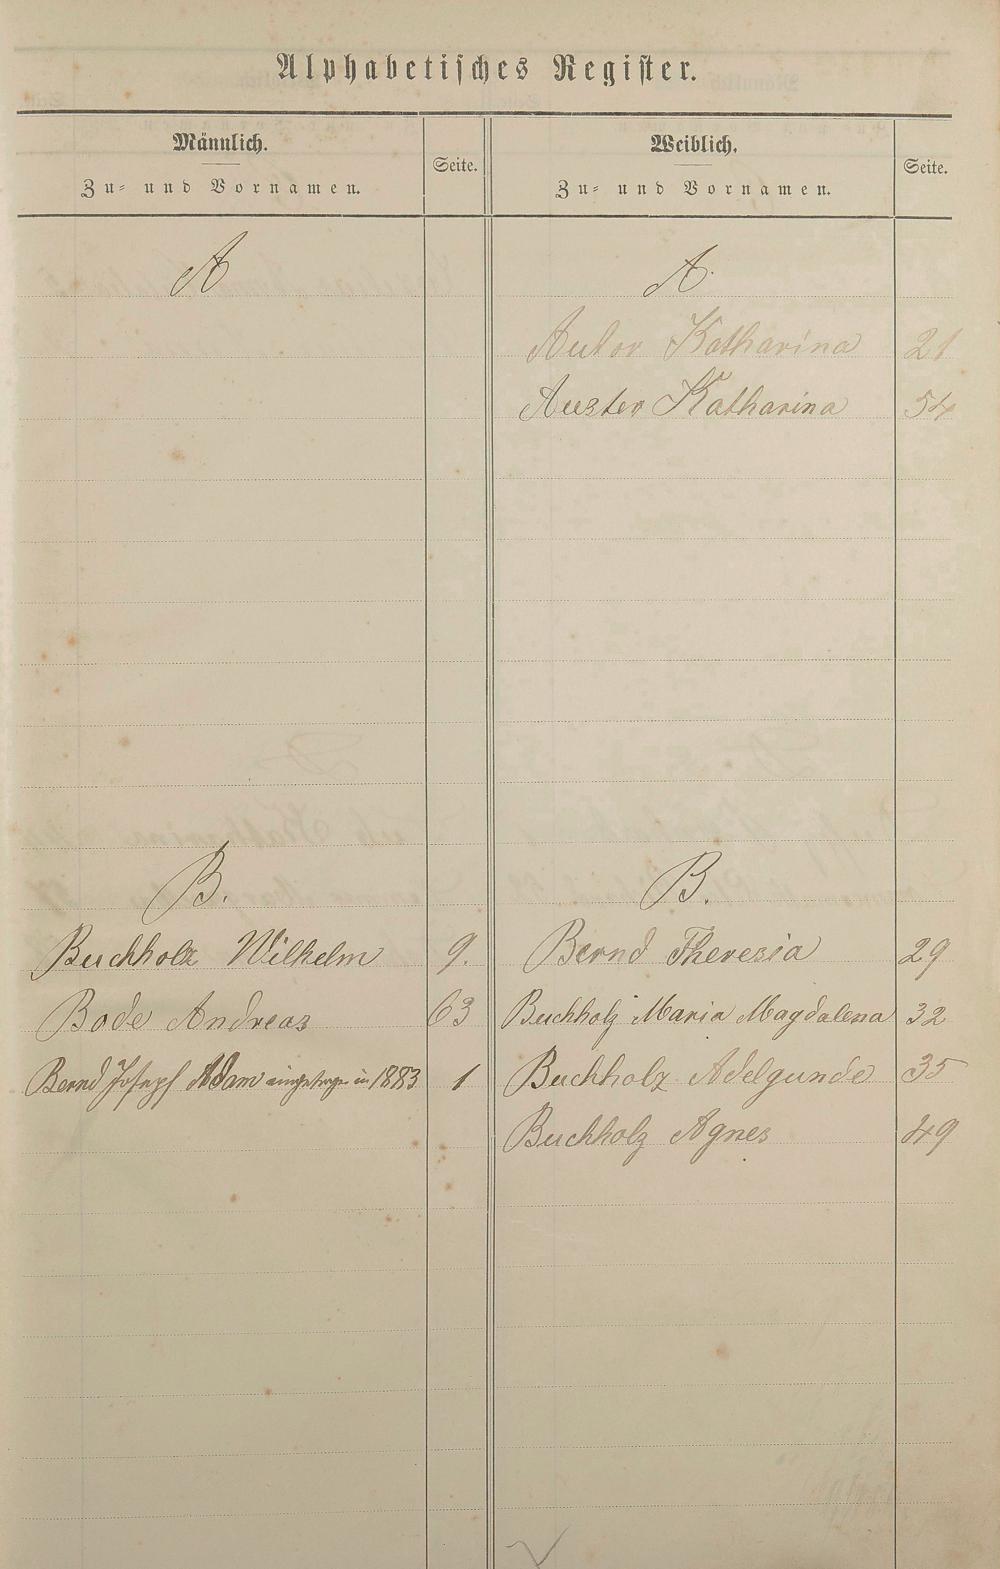 Alphabetisches Register.
Männlich.
Zu- und Vornamen.
Seite.
Weiblich.
Zu- und Vornamen.
Seite.
A
A.
Autor Katharina 21
Auster Katharina 54
B.
Buchholz Wilhelm 9.
Bode Andreas 63
Bernd Joseph Adam in 1883 1
B.
Bernd Theresia 29
Buchholz Maria Magdalena 32
Buchholz Adelgunde 35
Buchholz Agnes 49